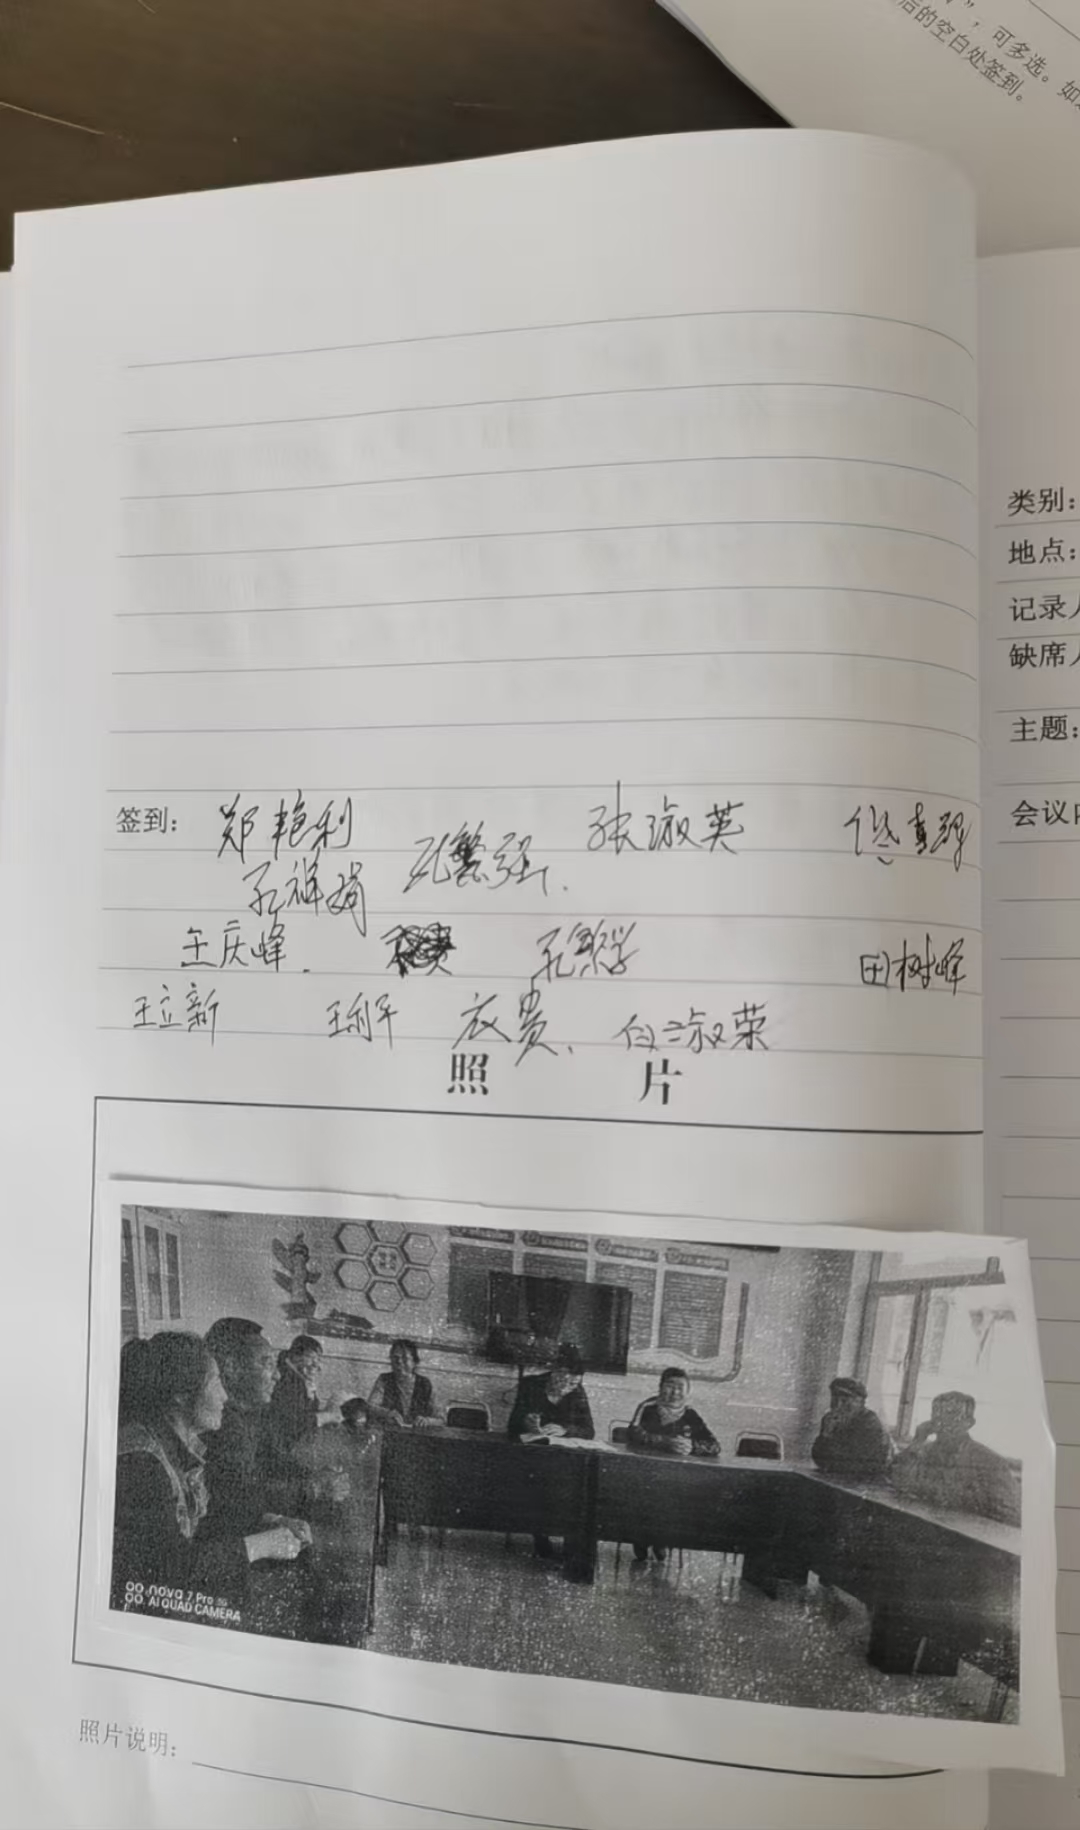 ”，可多选。如
后的空白处签到。
类别：
地点：
记录人
缺席人
主题：
会议内
签到： 郑艳利 孔繁强. 张淑英
孔祥娟
王庆峰. 孔繁学 田树峰
王立新 王利平 衣贵、 白淑荣
照 片
nova 7 Pro 5G
AI QUAD CAMERA
照片说明：